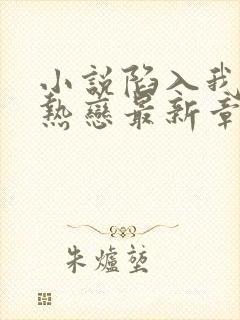 小說陷入我
熱戀最新章
朱爐墊